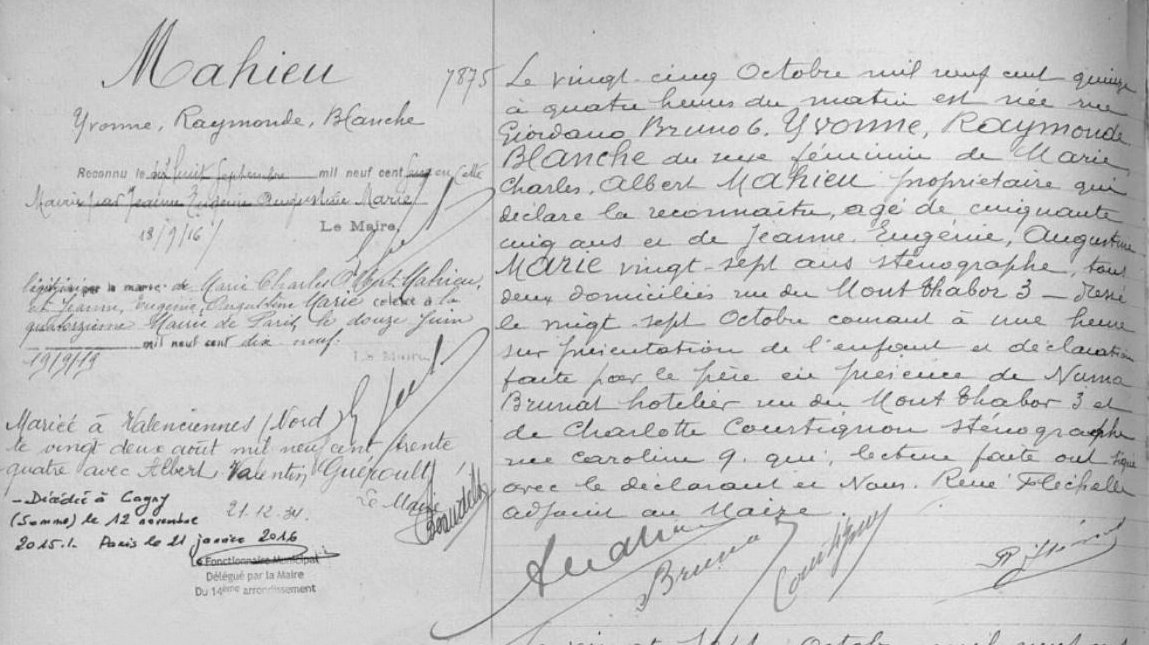 Mahieu
Yvonne, Raymonde, Blanche
Reconnu le dix huit Septembre mil neuf cent en cette
Mairie par Jeanne Eugénie Augustine Marie
18/9/16
Le Maire,
légitimée par le mariage de Marie Charles Albert Mahieu,
et Jeanne, Eugénie, Augustine Marie célébré à la
quatorzième Mairie de Paris, le douze Juin
mil neuf cent dix neuf.
19/9/19
Le Maire
Mariée à Valenciennes (Nord)
le vingt deux août mil neuf cent trente
quatre avec Albert Valentin Guéroult
21.12.34.
Le Maire
- Décédée à Cagny
(Somme) le 12 novembre
2015./. Paris le 21 janvier 2016
Fonctionnaire Municipal
Délégué par la Maire
Du 14ème arrondissement
7875
Le vingt-cinq Octobre mil neuf cent quinze
à quatre heures du matin est née rue
Giordano Bruno 6, Yvonne, Raymonde
Blanche du sexe féminin de Marie
Charles, Albert Mahieu propriétaire qui
déclare la reconnaître, agé de cinquante
cinq ans et de Jeanne, Eugénie, Augustine
Marie vingt-sept ans sténographe, tous
deux domiciliés rue du Mont Thabor 3 — Dressé
le vingt sept Octobre courant à une heure
sur présentation de l'enfant et déclaration
faite par le père en présence de Numa
Brunat hotelier rue du Mont Thabor 3 et
de Charlotte Courtignon sténographe
rue Caroline 9. qui, lecture faite ont signé
avec le déclarant et Nous. René Flechelle
adjoint au Maire.